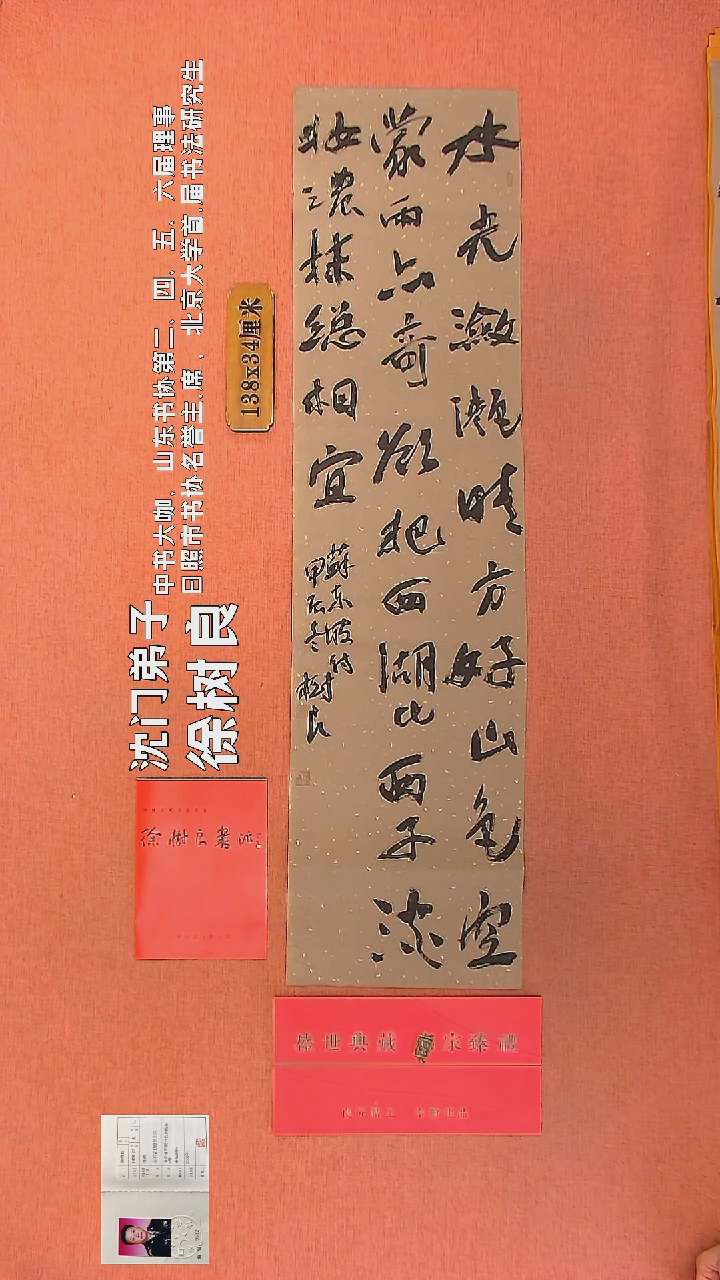 沈门弟子 中书大咖、山东书协第二、四、五、六届理事
徐树良 日照市书协名誉主席、北京大学首届书法研究生
138x34厘米
水光瀲灩晴方好山色空
蒙雨亦奇欲把西湖比西子淡
妝濃抹總相宜
蘇東坡詩樹
甲辰冬樹良
徐樹良書法
盛世典藏 宗臻禮